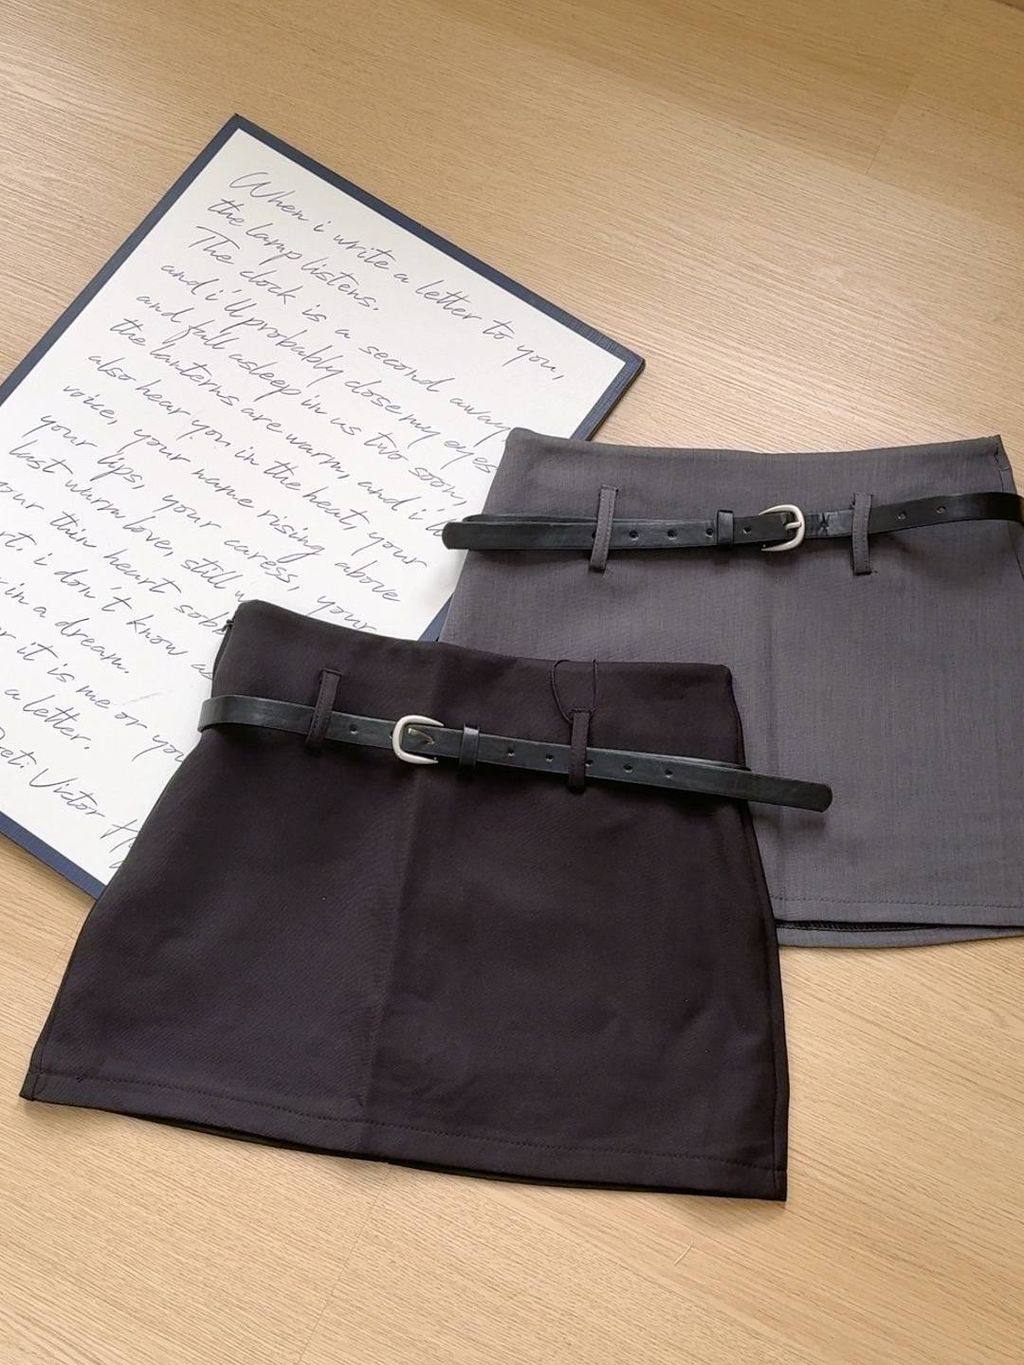 When i write a letter to you,
the lamp listens.
The clock is a second away
and i'll probably close my eyes
and fall asleep in us two soon,
the lanterns are warm, and i'll
also hear you in the heat, your
voice, your name rising above
your lips, your caress, your
last warm love, still
your thin heart
i don't know
in a dream.
it is me or you
a letter.
Poet: Victor